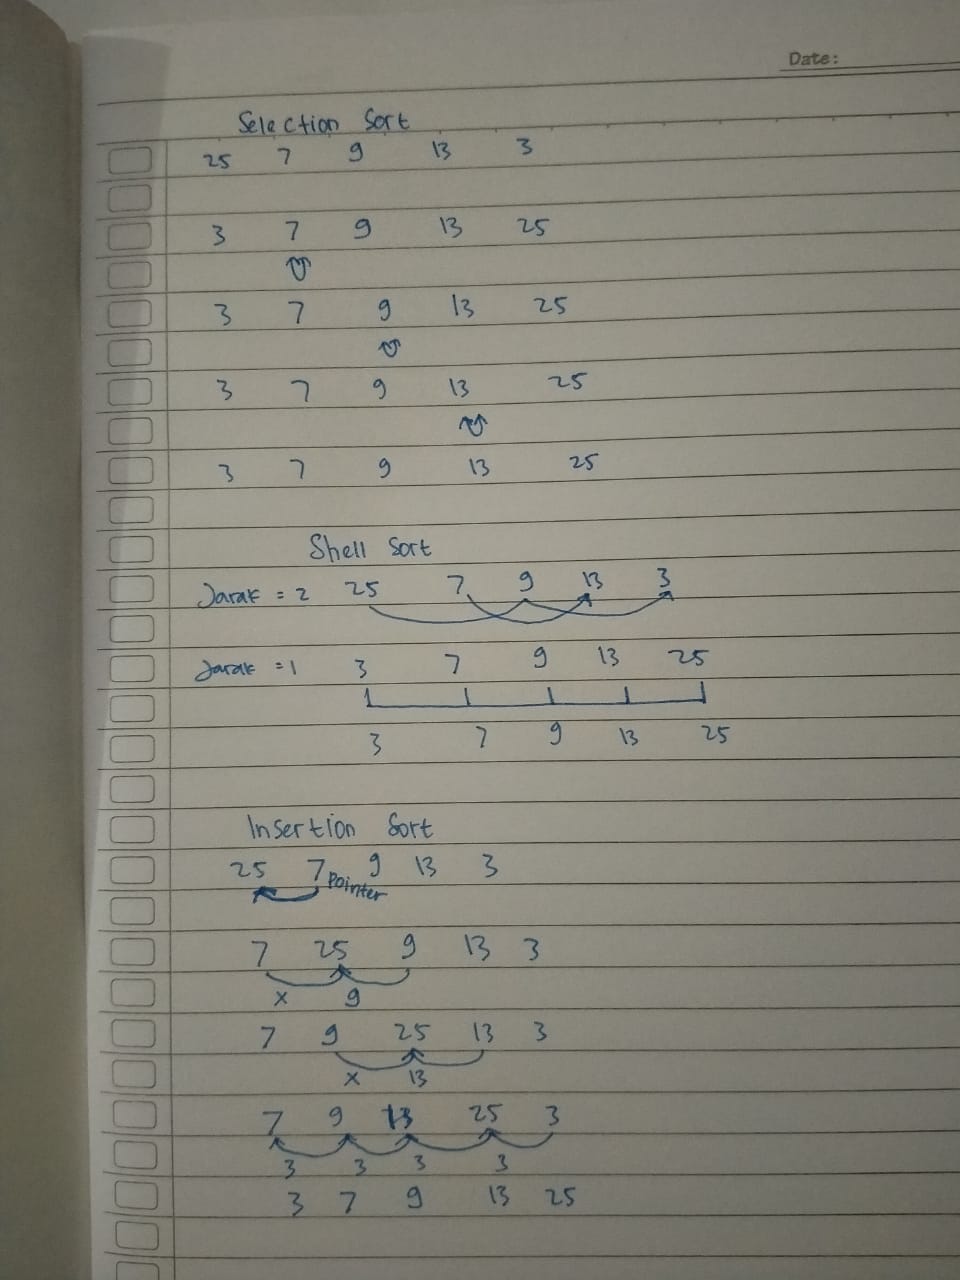 Date:
Selection Sort
25 7 9 13 3
3 7 9 13 25
3 7 9 13 25
3 7 9 13 25
3 7 9 13 25
Shell Sort
Jarak = 2 25 7 9 13 3
Jarak = 1 3 7 9 13 25
3 7 9 13 25
Insertion Sort
25 7 9 13 3
Pointer
7 25 9 13 3
x 9
7 9 25 13 3
x 13
7 9 13 25 3
3 3 3 3
3 7 9 13 25